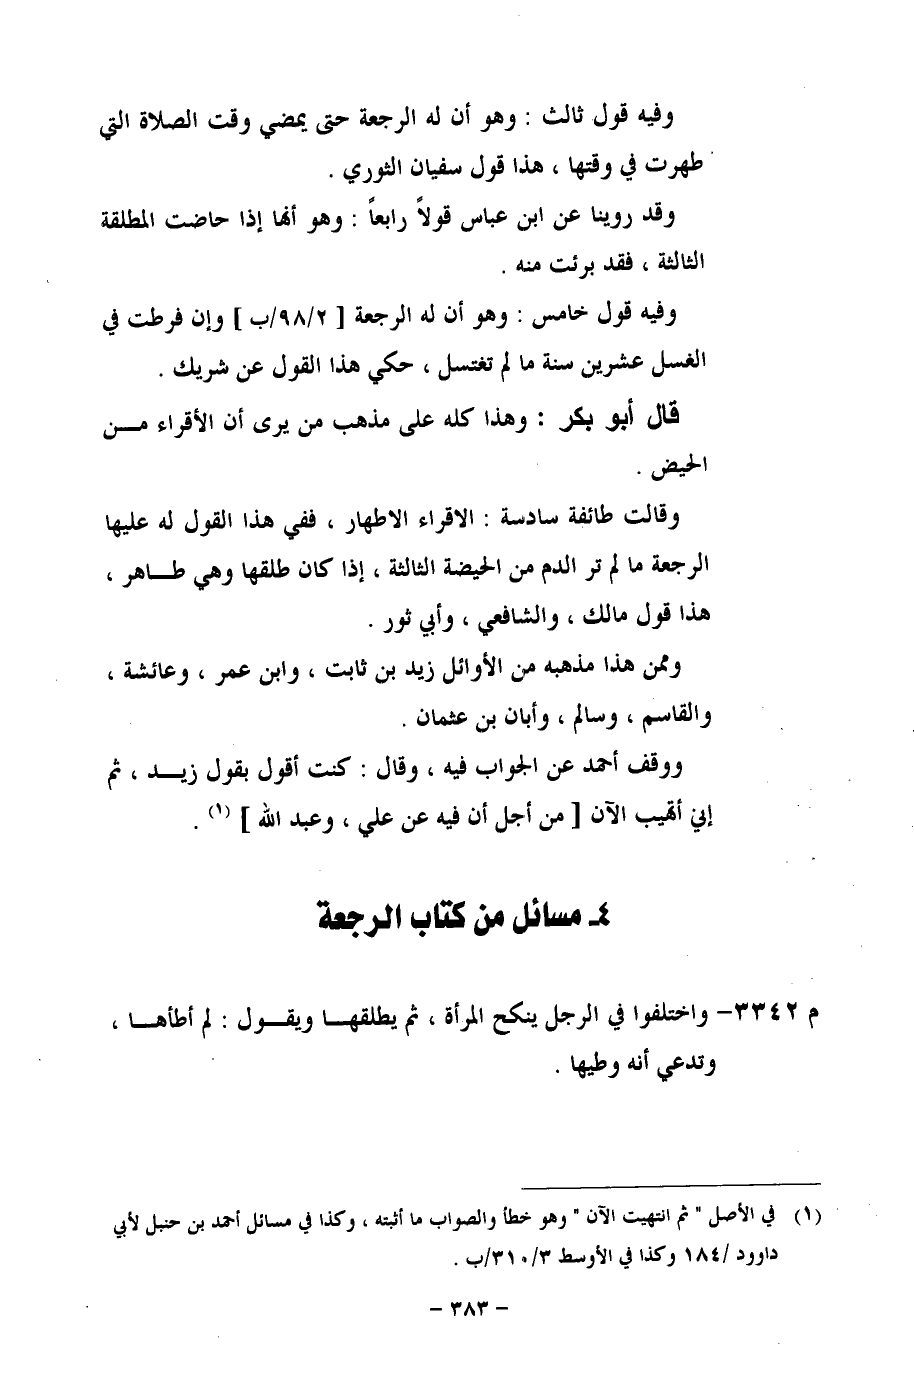 وفيه قول ثالث : وهو أن له الرجعة حتى يمضي وقت الصلاة التي
طهرت في وقتها ، هذا قول سفيان الثوري .
وقد روينا عن ابن عباس قولاً رابعاً : وهو أنها إذا حاضت المطلقة
الثالثة ، فقد برئت منه .
وفيه قول خامس : وهو أن له الرجعة [ ٩٨/٢/ب ] وإن فرطت في
الغسل عشرين سنة ما لم تغتسل ، حكي هذا القول عن شريك .
قال أبو بكر : وهذا كله على مذهب من يرى أن الأقراء مـــن
الحيض .
وقالت طائفة سادسة : الاقراء الاطهار ، ففي هذا القول له عليها
الرجعة ما لم تر الدم من الحيضة الثالثة ، إذا كان طلقها وهي طـــاهر ،
هذا قول مالك ، والشافعي ، وأبي ثور .
وممن هذا مذهبه من الأوائل زيد بن ثابت ، وابن عمر ، وعائشة ،
والقاسم ، وسالم ، وأبان بن عثمان .
ووقف أحمد عن الجواب فيه ، وقال : كنت أقول بقول زيـــد ، ثم
إني أتهيب الآن [ من أجل أن فيه عن علي ، وعبد الله ] (١) .
٤ـ مسائل من كتاب الرجعة
م ٣٣٤٢- واختلفوا في الرجل ينكح المرأة ، ثم يطلقهـــا ويقـــول : لم أطأهـــا ،
وتدعي أنه وطيها .
(١) في الأصل " ثم انتهيت الآن " وهو خطأ والصواب ما أثبته ، وكذا في مسائل أحمد بن حنبل لأبي
داوود /١٨٤ وكذا في الأوسط ٣١٠/٣/ب .
- ٣٨٣ -